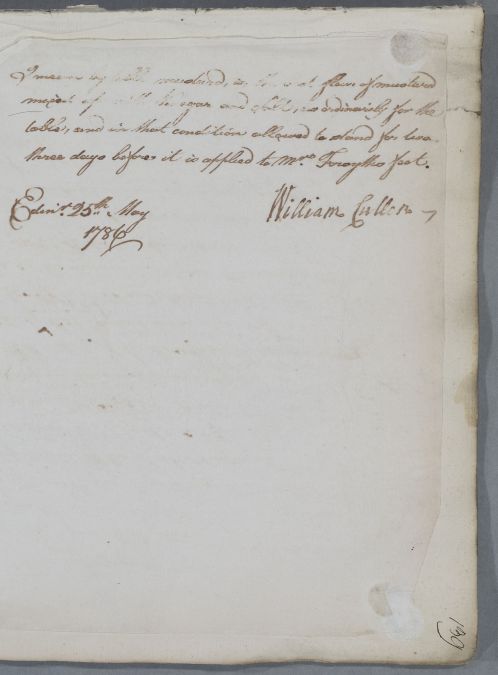 I mean by mustard, the flour of mustard
mixed up with Vinegar and Salt, as ordinarily for the
table, and in that condition allowed to stand for two
three days before it is applied to Mrs. Forsyths feet.
Edinr. 25th. May
1786
William Cullen
189